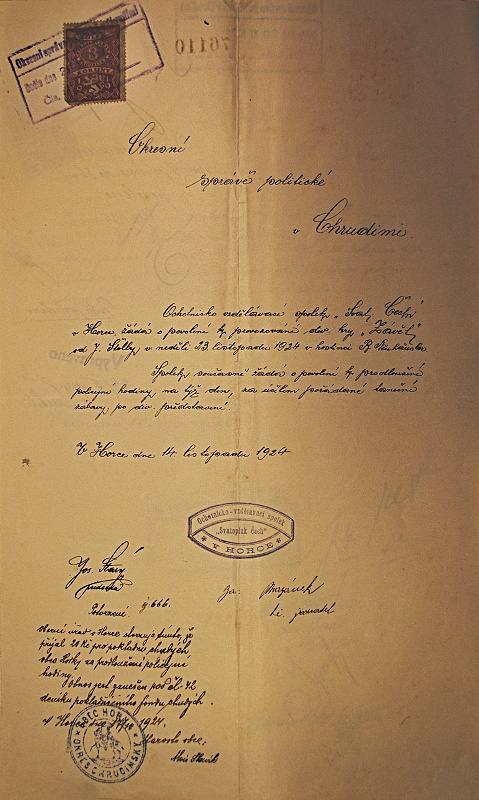 Okresní správ
dne 2
76110
Okresní
správě politické
v Chrudimi.
Ochotnicko vzdělávací spolek „Svat. Čech“
v Horce žádá o povolení k provozování div. hry „Závěť“
od J. Štolby v neděli 23. listopadu 1924 v hostinci R.
Spolek současně žádá o povolení k prodloužení
policejní hodiny na týž den, za účelem pořádané taneční
zábavy po div. představení.
V Horce dne 14 listopadu 1924
Ochotnicko-vzdělávací spolek
„Svatopluk Čech“
V HORCE
Jos. Starý
předseda
Potvrzení čj. 666.
Obecní úřad v Horce stvrzuje tímto, že
přijal 20 Kč pro pokladnu chudých
obce Horky za prodloužení policejní
hodiny.
Obnos jest zanesen pod čl. 42
deníku pokladničního fondu chudých.
V Horce dne 1924.
Starosta obce:
OBEC HORKA
OKRES CHRUDIMSKÝ
jednatel